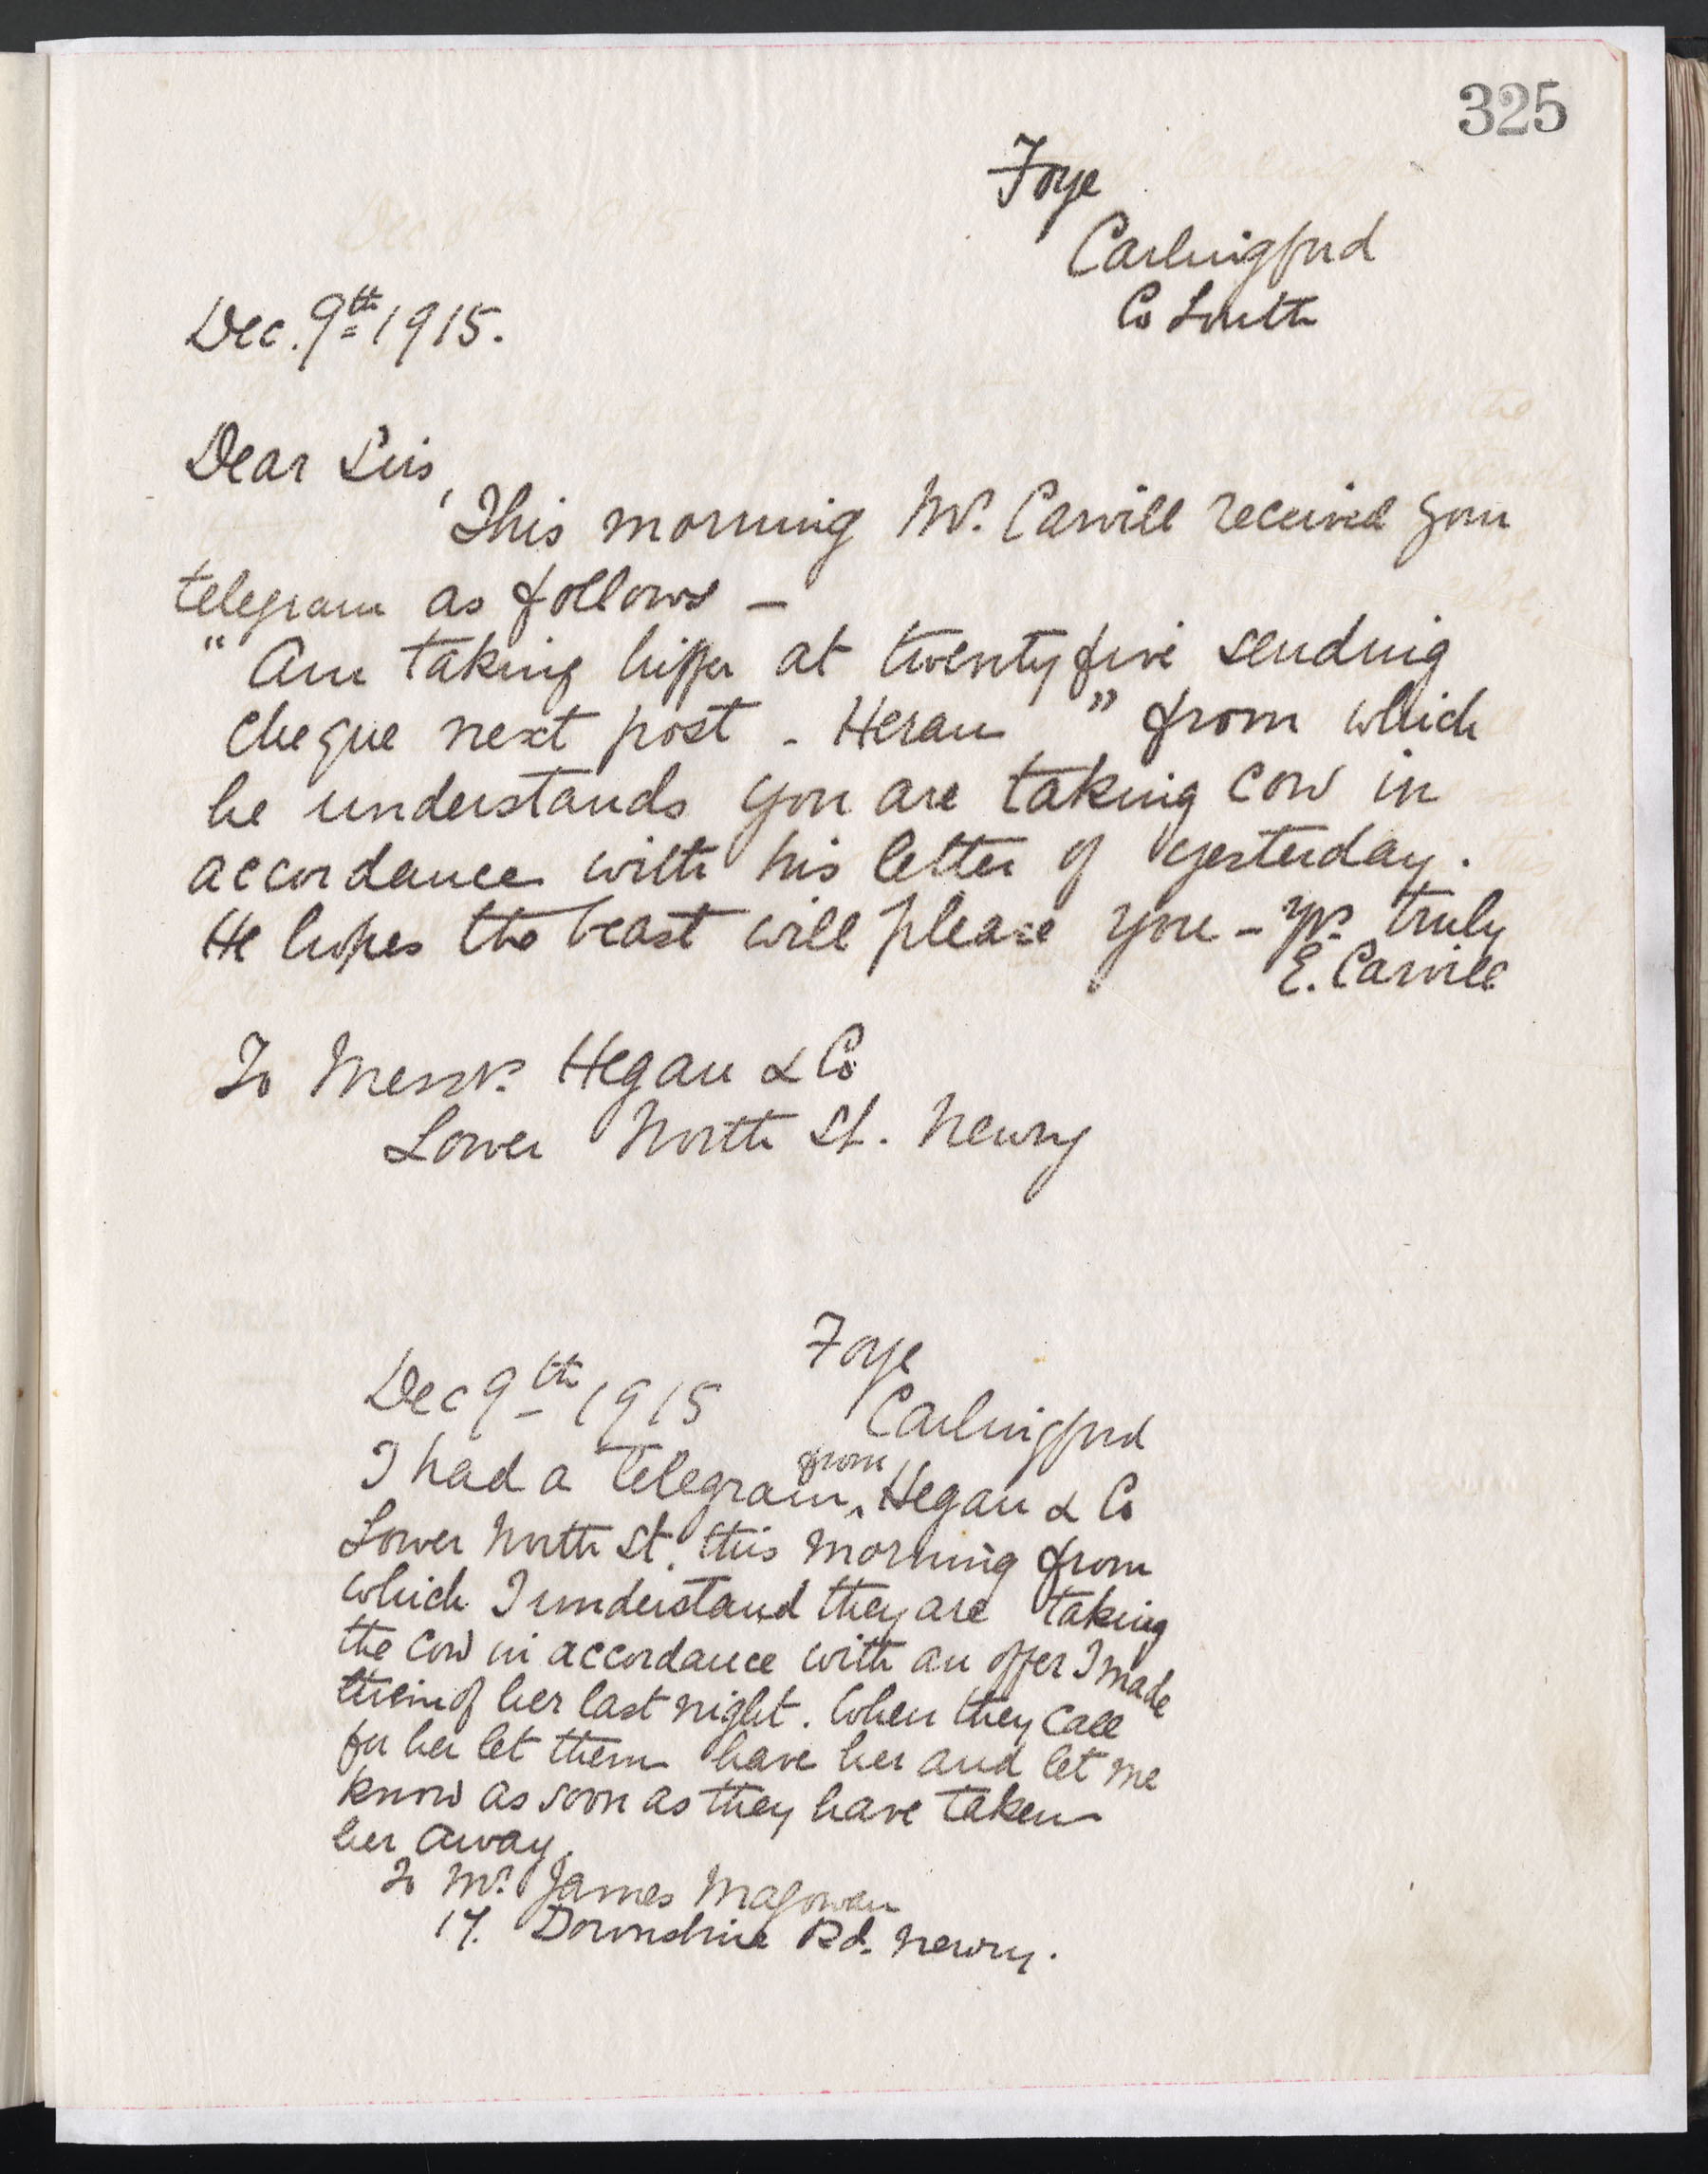 325
Foye
Carlingford
Co Louth
Dec. 9th 1915.
Dear Sirs,
This morning Mr. Carvill received your
telegram as follows —
" Am taking hiffer at twenty five sending
cheque next post - Heran " from which
he understands you are taking cow in
accordance with his letter of yesterday.
He hopes the beast will please you - Yrs. truly
E. Carvill
To Messrs. Hegan & Co
Lower North St. Newry
Foye
Dec 9th 1915
Carlingford
I had a telegram from Hegan & Co
Lower North St. this morning from
which I understand they are taking
the cow in accordance with an offer I made
them of her last night. When they call
for her let them have her and let me
know as soon as they have taken
her away.
To Mr. James Magowan
17. Downshire Rd. Newry.